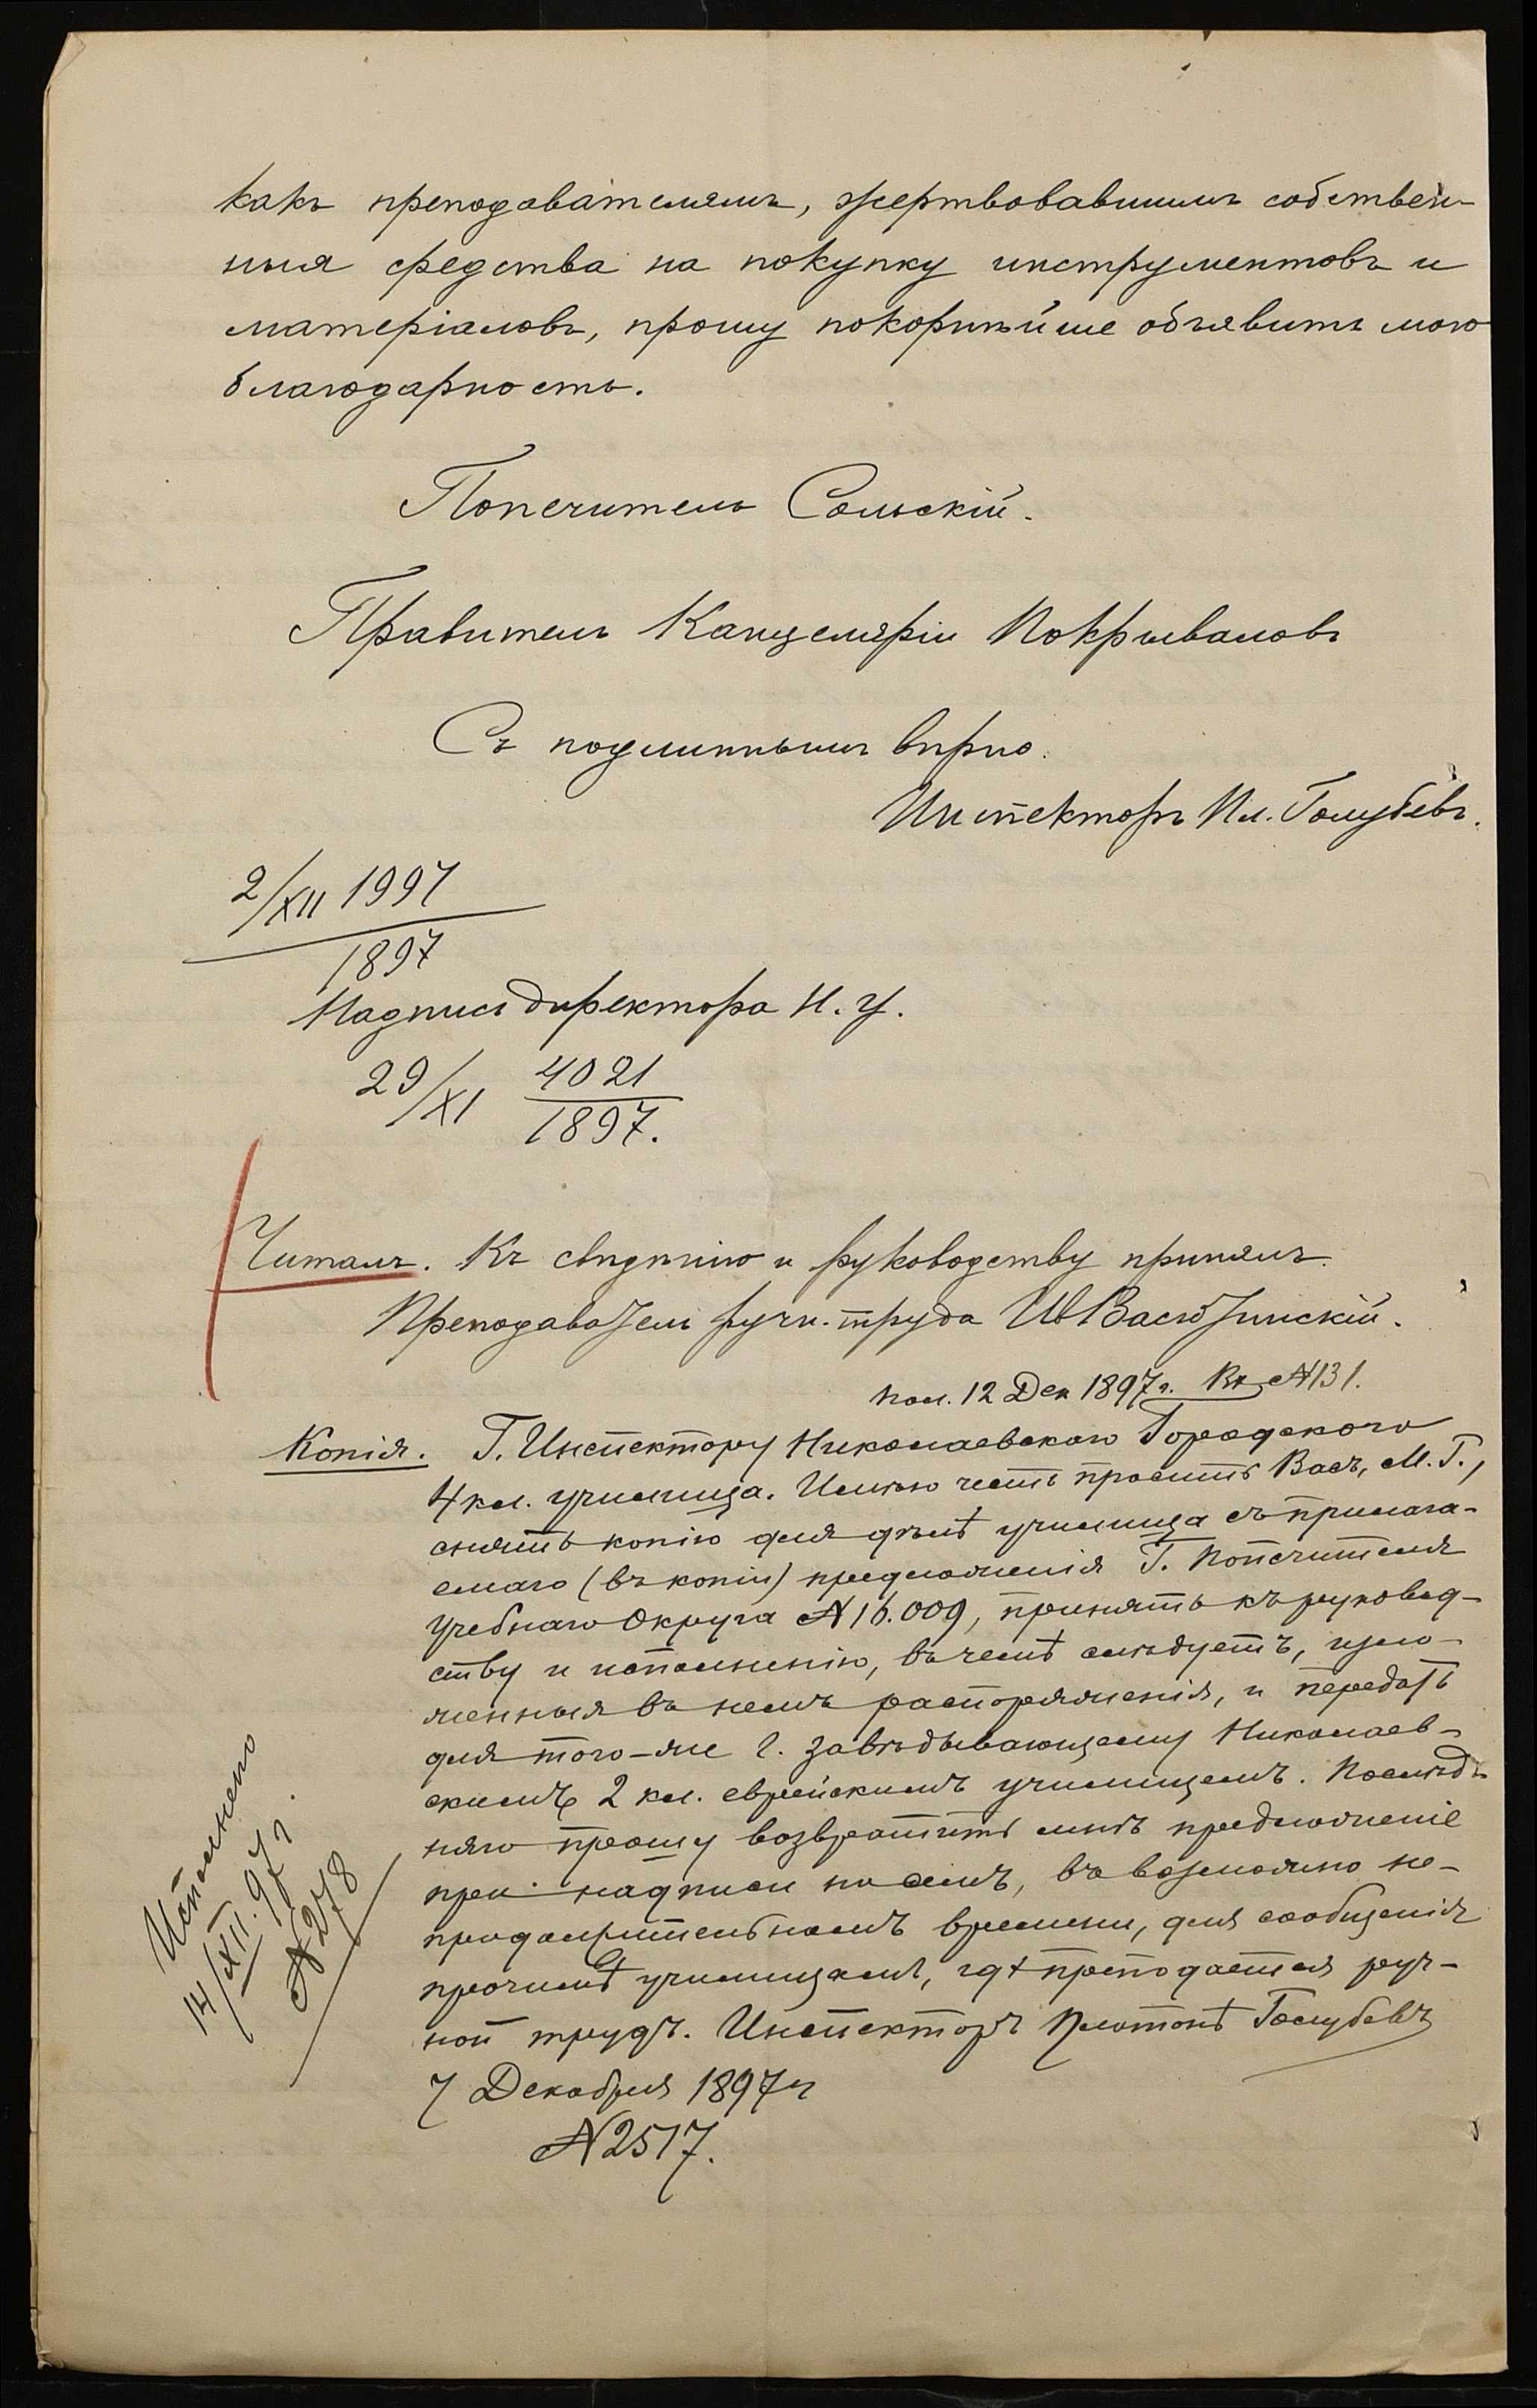 какъ преподавателямъ, жертвовавшимъ собствен-
ныя средства на покупку инструментовъ и
матеріаловъ, прошу покорнѣйше объявить мою
благодарность.
Попечитель Сольскій.
Правитель Канцеляріи Покрываловъ
Съ подлиннымъ вѣрно.
Инспекторъ Пл. Голубевъ.
2/XII 1997
1897
Надпись директора Н. У.
29/XI 4021
1897.
Читалъ. Къ свѣдѣнію и руководству принялъ.
Преподаватель ручн. труда
пол. 12 Дек 1897 г. Вх. №131.
Копія. Г. Инспектору Николаевскаго Городского
4 кл. училища. Имѣю честь просить Васъ, М. Г.,
снять копію для дѣлъ училища съ прилага-
емаго (въ копіи) предложенія Г. Попечителя
Учебнаго Округа №16.009, принять къ руковод-
ству и исполненію, въ чемъ слѣдуетъ, изло-
женныя въ немъ распоряженія, и передать
для того-же г. завѣдывающему Николаев-
скимъ 2 кл. еврейскимъ училищемъ. Послѣд-
няго прошу возвратить мнѣ предложеніе
при надписи на семъ, въ возможно не-
продолжительномъ времени, для сообщенія
прочимъ училищамъ, гдѣ преподается руч-
ной трудъ. Инспекторъ Платонъ Голубевъ
7 Декабря 1897 г
№2517.
Исполнено
14/XII. 97 г.
№278